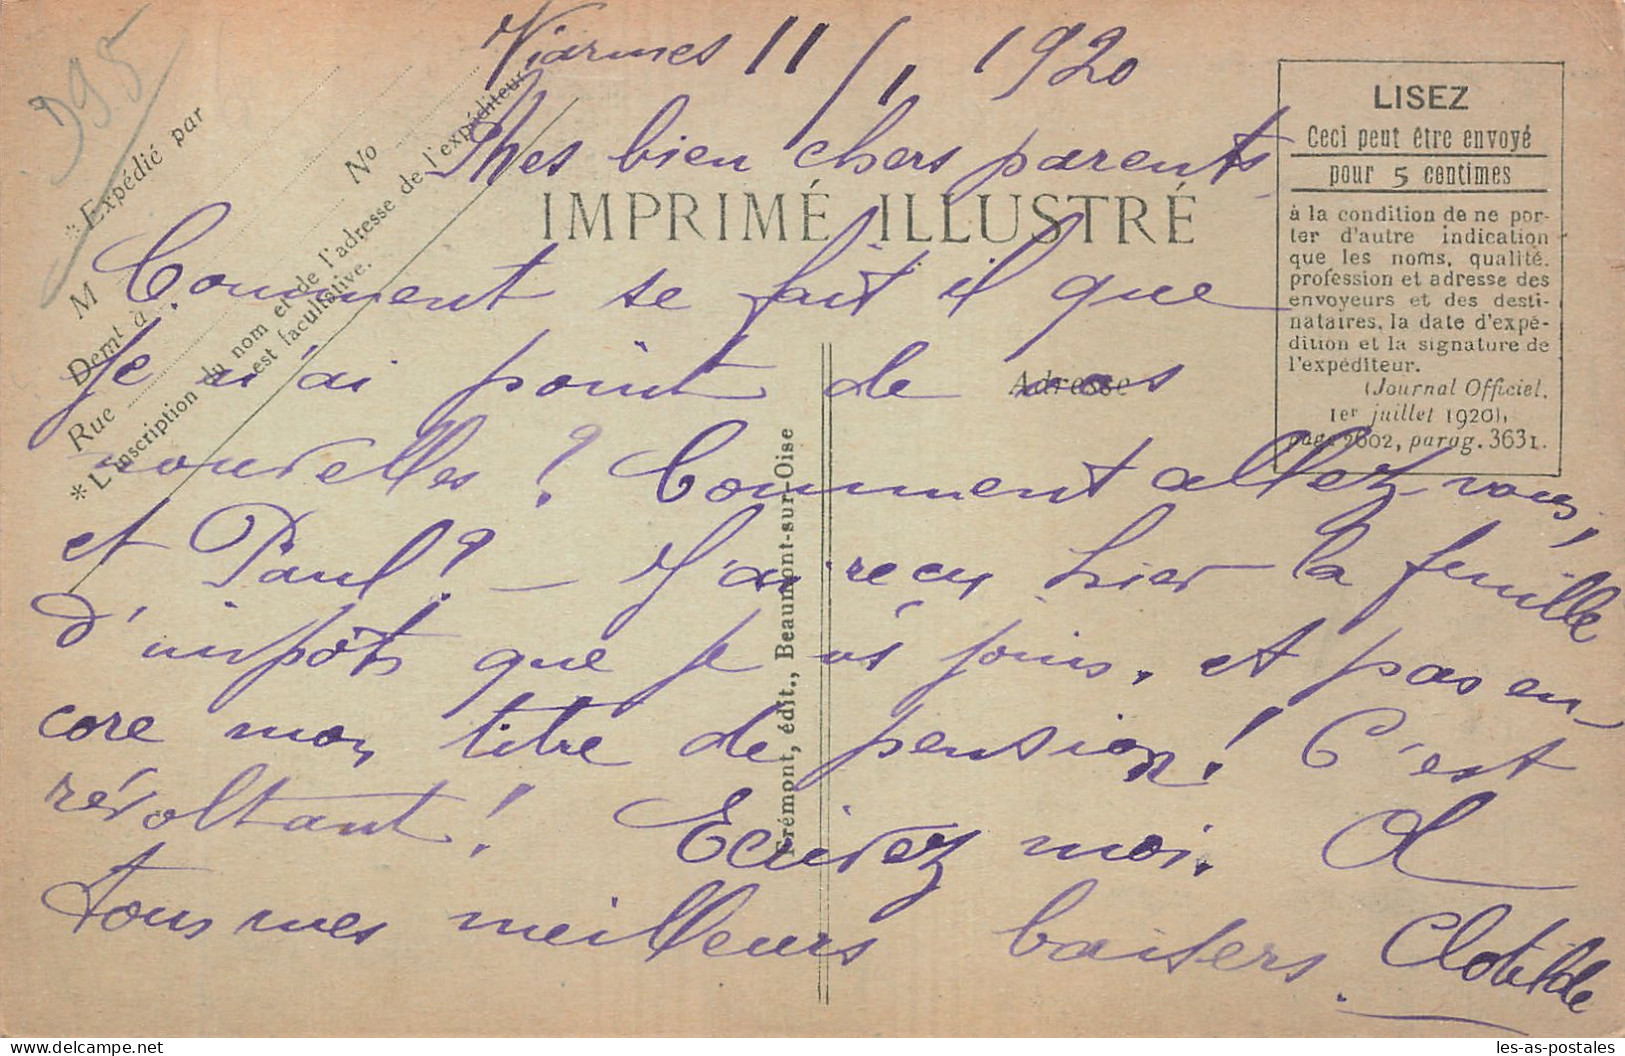 D95
Viarmes 11/1 1920
Mes bien chers parents
Comment se fait il que
je n'ai point de vos
nouvelles ? Comment allez-vous,
et Paul ? – J'ai recu hier la feuille
d'impôts que je vs joins. et pas en
core mon titre de pension ! C'est
révoltant ! Ecrivez moi. A
tous mes meilleurs baisers. Clotilde
IMPRIMÉ ILLUSTRÉ
Adresse
* Expédié par
M
No
Demt à
Rue
* L'inscription du nom et de l'adresse de l'expéditeur
est facultative.
Frémont, édit., Beaumont-sur-Oise
LISEZ
Ceci peut être envoyé
pour 5 centimes
à la condition de ne por-
ter d'autre indication
que les noms, qualité,
profession et adresse des
envoyeurs et des desti-
nataires, la date d'expé-
dition et la signature de
l'expéditeur.
(Journal Officiel,
1er juillet 1920),
page 2602, parag. 3631.
les-as-postales